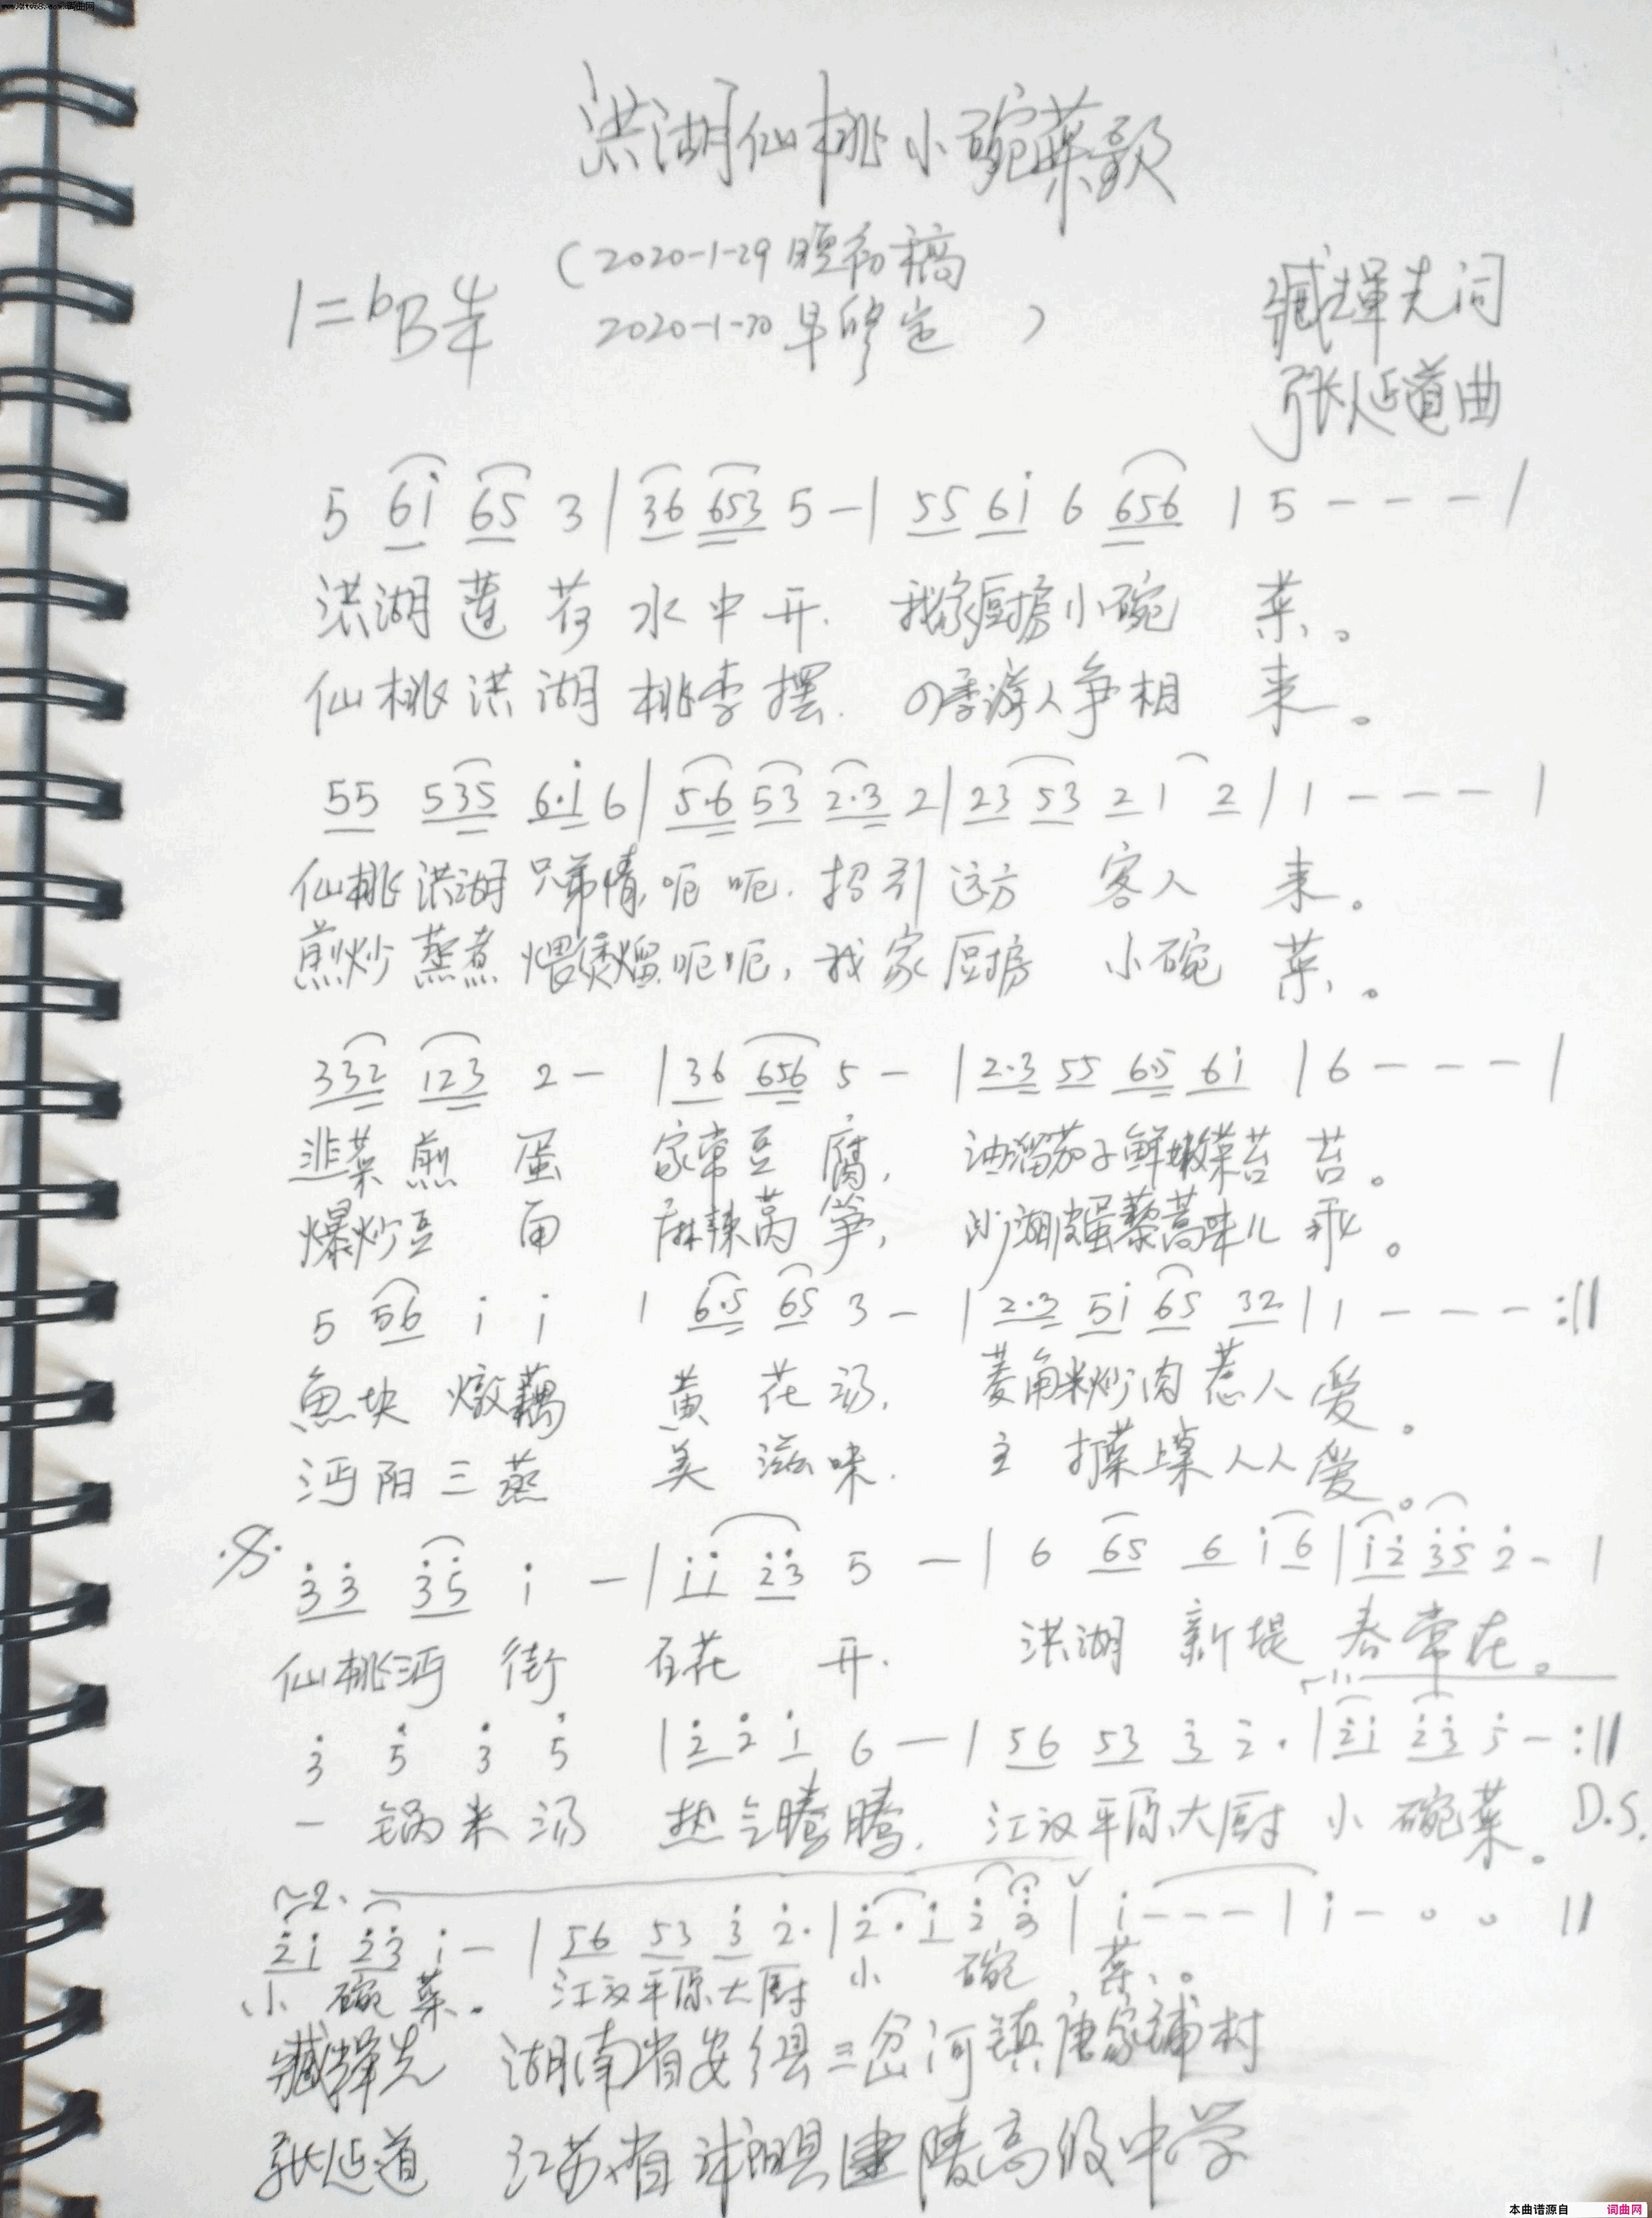 洪湖仙桃小碗菜歌
(2020-1-29晚初稿
1=bB 4/4 2020-1-30早修定) 臧辉先词
张延道曲
5 6i 65 3 | 36 653 5 - | 55 6i 6 656 | 5 - - - |
洪湖莲花水中开. 我家厨房小碗菜。
仙桃洪湖桃李摆. 四季游人争相来。
55 535 6·i 6 | 5·6 53 2·3 2 | 23 53 2 1 2 | 1 - - - |
仙桃洪湖兄弟情,呃呃. 招引远方客人来。
煎炒蒸煮煨煲熘,呃呃, 我家厨房小碗菜。
332 123 2 - | 36 656 5 - | 2·3 55 6·5 6i | 6 - - - |
韭菜煎蛋 家常豆腐, 油溜茄子鲜嫩菜苔苔。
爆炒豆 麻辣莴笋, 沙湖皮蛋藜蒿味儿乖。
5 56 i i | 6·5 65 3 - | 2·3 5i 65 32 | 1 - - - :||
鱼块燉藕 黄花汤. 菱角米炒肉惹人爱。
沔阳三蒸 美滋味. 主打菜上桌人人爱。
33 35 i - | ii 23 5 - | 6 65 6 i6 | i2 35 2 - |
仙桃沔街百花开. 洪湖新堤春常在。
3 5 3 5 | 2 2 i 6 - | 56 53 3 2· | 2i 23 5 - :||
一锅米汤热气腾腾. 江汉平原大厨小碗菜。 D.S.
2.
2i 23 i - | 56 53 3 2· | 2· i 2 3 | i - - - | i - 0 0 ||
小碗菜。 江汉平原大厨小碗菜。
臧辉先 湖南省安乡县三岔河镇唐家铺村
张延道 江苏省沭阳县建陵高级中学
本曲谱源自 词曲网